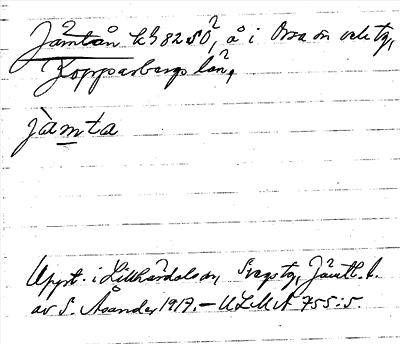 Jämtån kb 82 SO, å i Orsa sn och tg,
Kopparbergs län,
jàmta
Uppt. i Lillhärdal sn, Svegs tg, Jämtl. l.
av S. Åsander 1917. – ULMA 755:5.